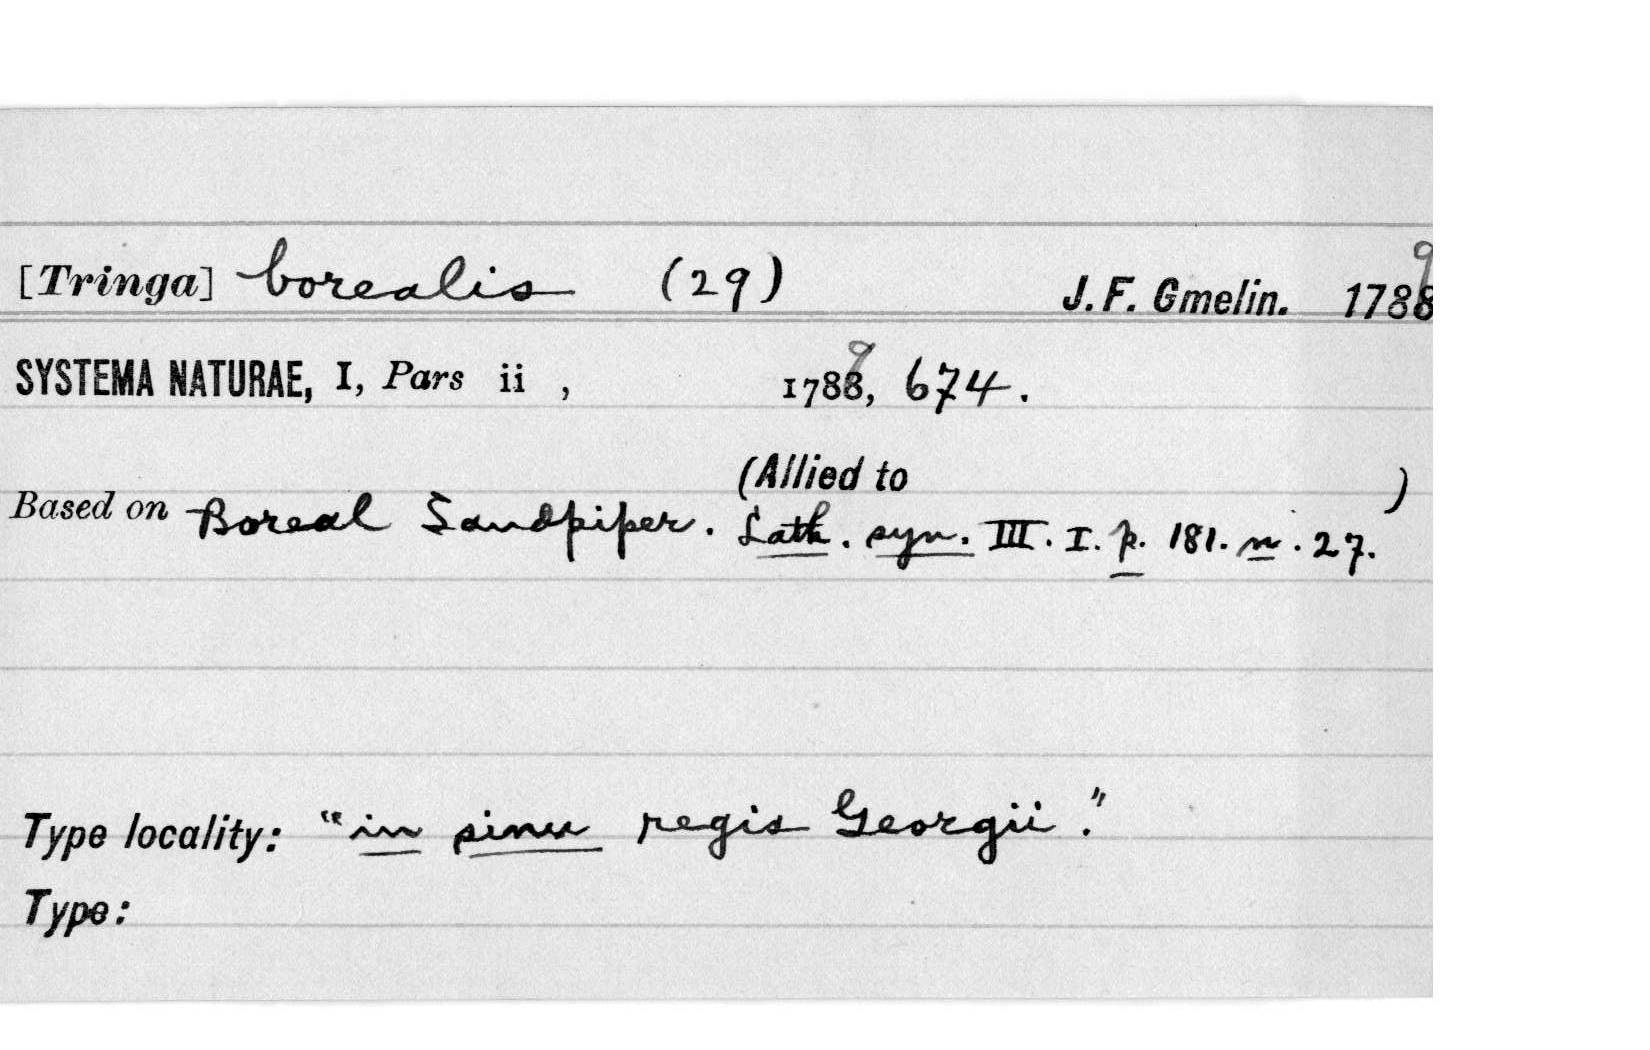 [Tringa] borealis (29) J. F. Gmelin. 1788 9
SYSTEMA NATURAE, I, Pars ii , 1788 9, 674.
(Allied to )
Based on Boreal Sandpiper. Lath. syn. III. I. p. 181. n. 27.
Type locality: "in sinu regis Georgii."
Type: